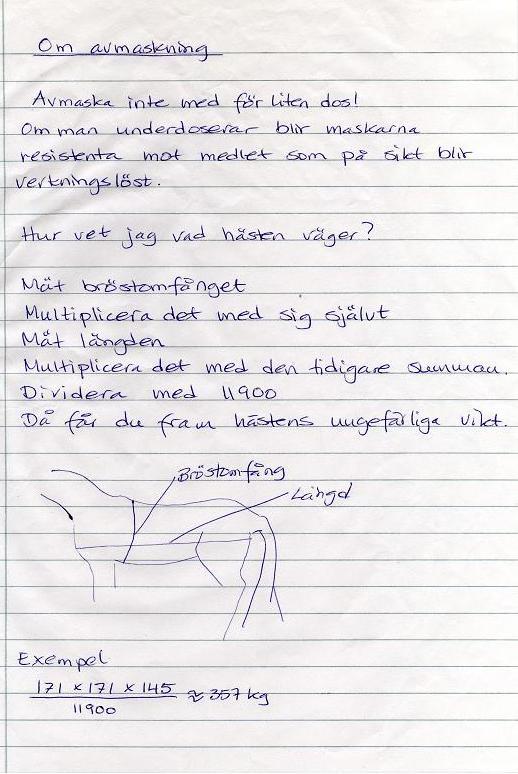 Om avmaskning
Avmaska inte med för liten dos!
Om man underdoserar blir maskarna
resistenta mot medlet som på sikt blir
verkningslöst.
Hur vet jag vad hästen väger?
Mät bröstomfånget
Multiplicera det med sig självt
Mät längden
Multiplicera det med den tidigare summan.
Dividera med 11900
Då får du fram hästens ungefärliga vikt.
Bröstomfång
Längd
Exempel
171 x 171 x 145
11900
≈ 357 kg